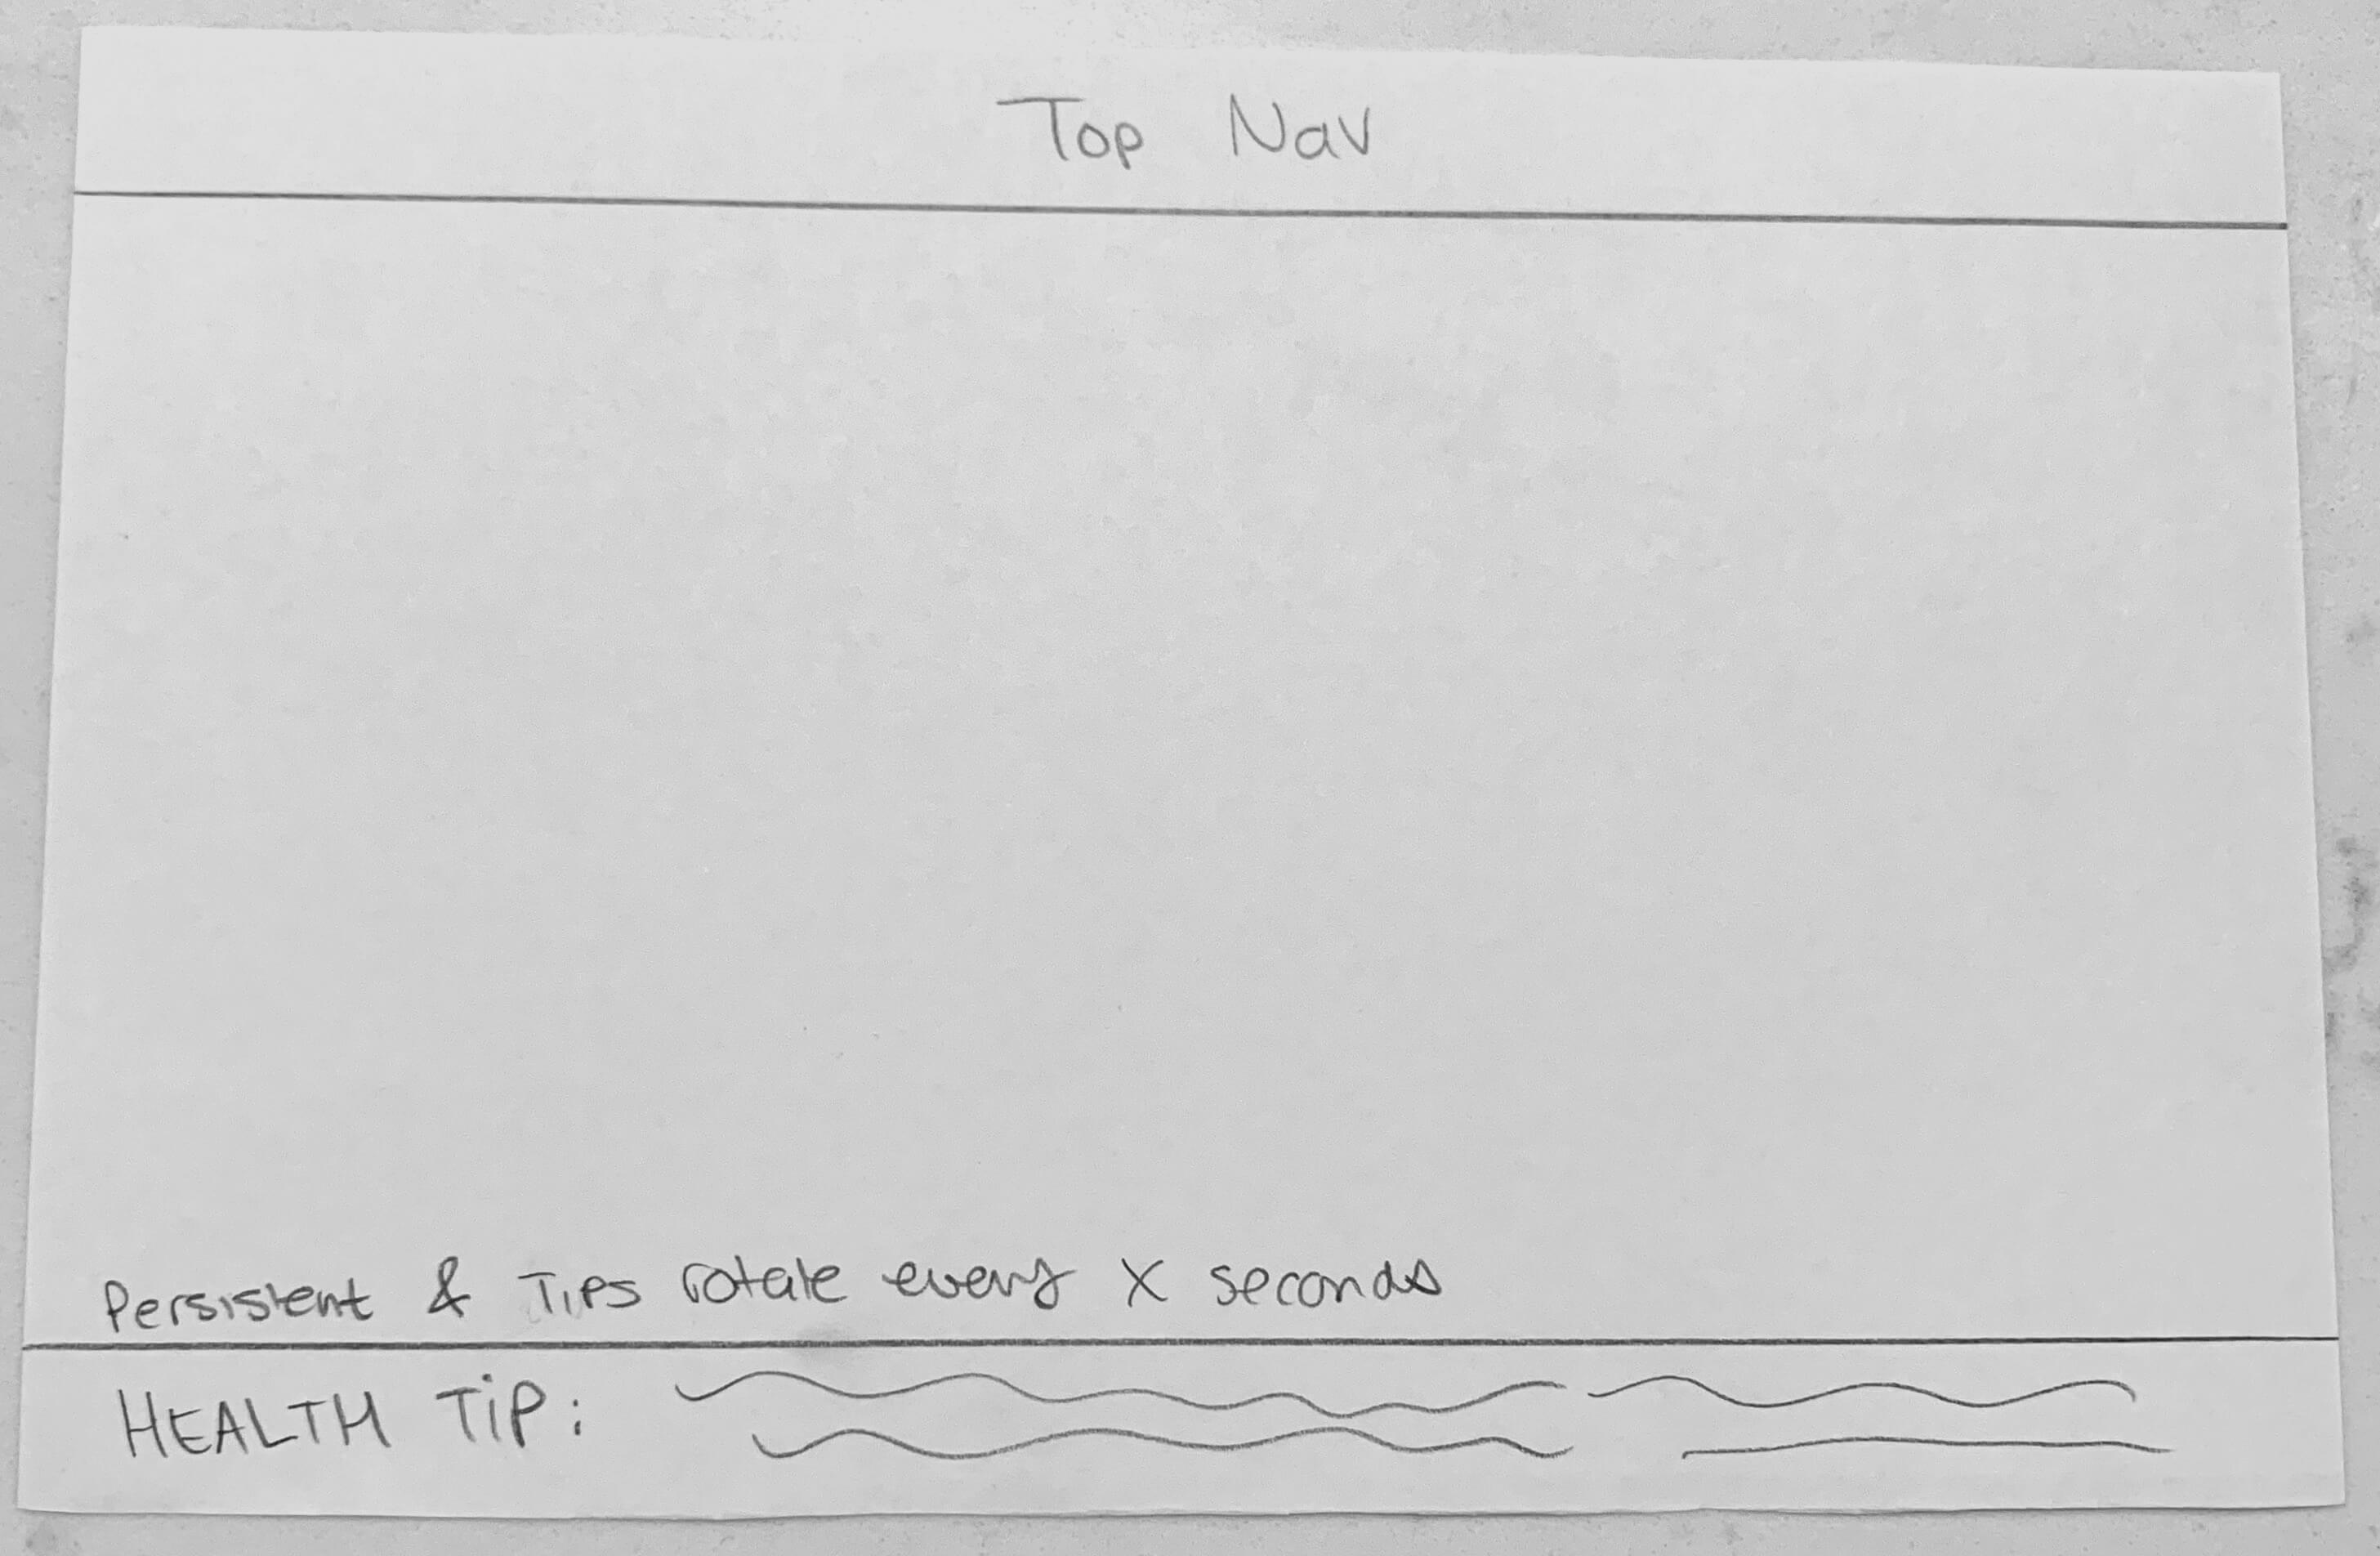 Top Nav
Persistent & Tips rotate every X seconds
HEALTH TiP: